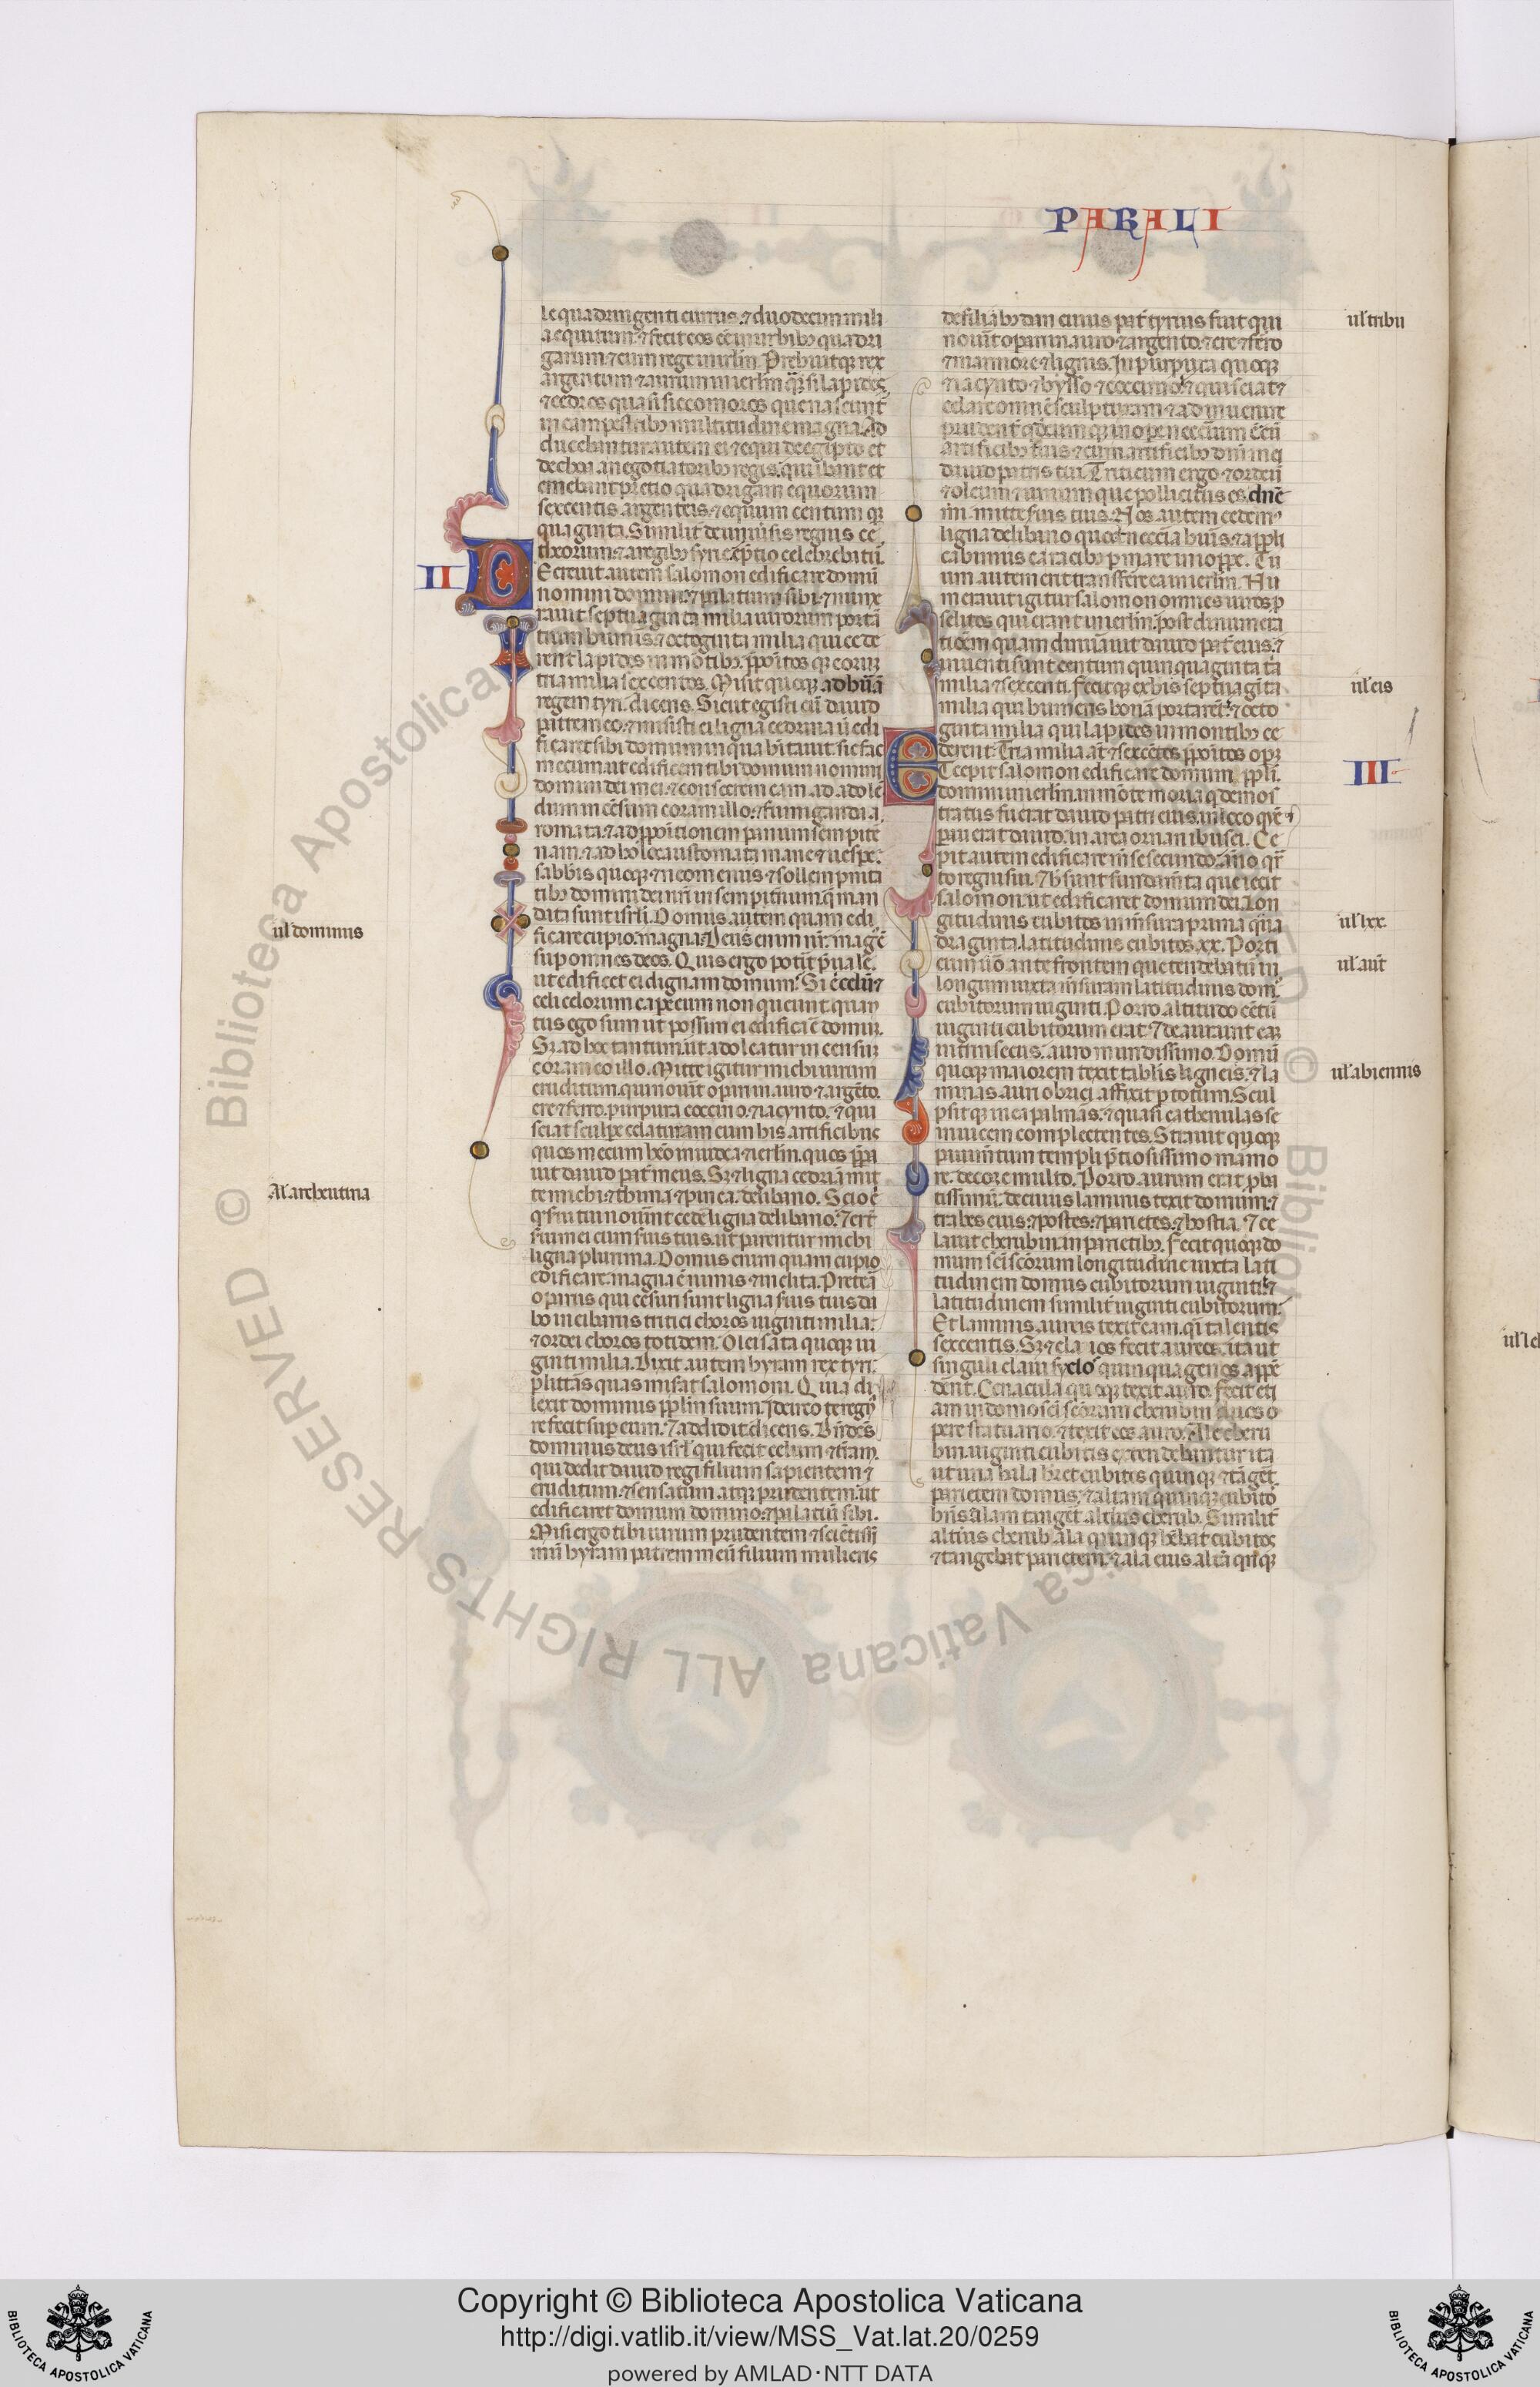 PARALI
le quadringenti currus. ⁊ duodecim mili
a equitum. ⁊ fecit eos eē in urbibꝫ quadri
garum. ⁊ cum rege in ierlm. Prebuitqꝫ rex
argentum ⁊ aurum in ierlm q̄si lapides
⁊ cedros quasi siccomoros que nascunt̄
in campestribꝫ multitudine magna. Ad
ducebantur autem ei ⁊ equi de egipto et
de choa a negotiatoribꝫ regis. qui ibant et
emebant precio quadrigam equorum
sexcentis argenteis. ⁊ equum centum qī
quaginta. Similit̄ de uniūsis regnis ce
theorum. ⁊ a regibꝫ syrie ep̄tio celebrabatū.
II
Decreuit autem salomon edificare domū
nomini domini. ⁊ palatium sibi. ⁊ nume
rauit septuaginta milia uirorum portā
tium humeris. ⁊ octoginta milia qui cede
rent lapides in mōtibꝫ. p̄positosqꝫ eorum
tria milia sexcentos. Misit quoqꝫ ad hyrā
regem tyri. dicens. Sicut egisti cū dauid
patre meo. ⁊ misisti ei ligna cedrina ut edi
ficaret sibi domum in qua habitauit. sic fac
mecum. ut edificem tibi domum nomini
domini dei mei. ⁊ consecrem eam ad adolē
dum incēsum coram illo. ⁊ fumigandi a
romata. ⁊ ad p̄positionem panum sempite
nam. ⁊ ad holocaustomata mane ⁊ uespe.
sabbis quoqꝫ. ⁊ neomeniis. ⁊ sollempnita
tibꝫ domini dei nr̄i in sempit̄num. q̄ man
data sunt isrl̄i. Domus autem quam edi
ficare cupio. magna. Deus enim nr̄ magꝰ ē
sup omnes deos. Quis ergo pot̄it p̄uale.
ut edificet ei dignam domum. Si celū ⁊
celi celorum capere eum non queunt. quan
tus ego sum ut possim ei edificare domum.
Sꝫ ad hoc tantum. ut adoleatur incensum
coram eo illo. Mitte igitur michi uirum
eruditum. qui nouit operari in auro ⁊ argēto.
ere ⁊ ferro. purpura coccino. ⁊ iacyncto. ⁊ qui
sciat sculpe celaturam cum his artificibus
quos mecum habeo in iudea ⁊ ierlm. quos p̄pa
uit dauid pat̄ meus. Sꝫ ⁊ ligna cedrina mit
te michi. ⁊ thina ⁊ pinea. de libano. Scio .n.
qꝫ serui tui nouerint cedere ligna de libano. ⁊ erūt
serui mei cum seruis tuis. ut parentur michi
ligna plurima. Domus enim quam cupio
edificare. magna ē nimis ⁊ inclita. Preterea
operariis qui cesuri sunt ligna. seruis tuis da
bo in cibaria tritici choros uiginti milia.
⁊ ordei choros totidem. Olei sata quoqꝫ ui
ginti milia. Dixit autem hyram rex tyri.
p litteras quas miserat salomoni. Quia di
lexit dominus pp̄lm suum. idcirco te regna
re fecit sup eum. ⁊ addidit dicens. Bn̄dc̄s
dominus deus isrl̄. qui fecit celum ⁊ terram.
qui dedit dauid regi filium sapientem ⁊
eruditum. ⁊ sensatum atqꝫ prudentem. ut
edificaret domum domino. ⁊ palatium sibi.
Misi ergo tibi uirum prudentem ⁊ scientissi
mū hyram patrem meū filium mulieris
ul' dominus
Al' archeutina
de filiabꝫ dan. cuius pat̄ tyrius fuit. qui
nouit operari in auro ⁊ argento. ⁊ ere ⁊ ferro
⁊ marmore ⁊ lignis. In purpura quoqꝫ
⁊ iacynto. ⁊ bysso ⁊ coccino. ⁊ qui sciat
celare omnē sculpturam. ⁊ adinuenire
prudent̄ qdcumqꝫ in opere necc̄ium ē. cū
artificibꝫ tuis. ⁊ cum artificibꝫ dn̄i mei
dauid patris tui. Triticum ergo ⁊ ordeū
⁊ oleum ⁊ uinum que pollicitus es dn̄e
mi. mitte seruis tuis. Nos autem cedemꝰ
ligna de libano quot necc̄ia habueris. ⁊ appli
cabimus ea ratibꝫ p mare in ioppe. Tu
um autem erit transferre ea in ierlm. Nu
merauit igitur salomon omnes uiros p
selitos. qui erant in ierlm. post dinumera
tionem quam dinumerauit dauid pat̄ eius. ⁊
inuenti sunt centum quinquaginta tria
milia ⁊ sexcenti. Fecitqꝫ ex his septuaginta
milia. qui humeris honera portarēt. ⁊ octo
ginta milia qui lapides in montibꝫ ce
derent. Tria milia aūt ⁊ sexcētos p̄positos op̄ꝫ
III
Et cepit salomon edificare domum. pp̄li.
domini in ierlm. in monte moria qui demos
tratus fuerat dauid patri eius. in loco quē
parauerat dauid. in area ornan iebusei. Ce
pit autem edificare mense secundo. anno qr̄
to regni sui. ⁊ hec sunt fundam̄ta que iecit
salomon. ut edificaret domum dei. Lon
gitudinis cubitos in mensura prima qua
draginta. latitudinis cubitos .xx. Porti
cum uero ante frontem que tendebatur in
longum iuxta mensuram latitudinis dom̄.
cubitorum uiginti. Porro altitudo centū
uiginti cubitorum erat. ⁊ deaurauit eam
intrinsecus. auro mundissimo. Domū
quoqꝫ maiorem texit tabulis ligneis. ⁊ la
minas auri obrizi affixit p totum. Scul
psitqꝫ in ea palmas. ⁊ quasi cathenulas se
inuicem complectentes. Strauit quoqꝫ
pauim̄tum templi p̄tiosissimo marmo
re. decore multo. Porro aurum erat proba
tissimum. de cuius laminis texit domum. ⁊
trabes eius. ⁊ postes. ⁊ parietes. ⁊ hostia. ⁊ ce
lauit cherubin in parietibꝫ. Fecit quoqꝫ do
mum sc̄i sc̄orum. longitudine iuxta lati
tudinem domus cubitorum uiginti. ⁊
latitudinem similit̄ uiginti cubitorum.
Et laminis aureis texit eam. qi talentis
sexcentis. Sꝫ ⁊ clauos fecit aureos. ita ut
singuli claui syclos quinquagenos appē
derent. Cenacula quoqꝫ texit auro. Fecit eti
am in domo sc̄i sc̄orum cherubin duos. o
pere statuario. ⁊ texit eos auro. Ale cheru
bin. uiginti cubitis extendebantur. ita
ut una ala haberet cubitos quinqꝫ. ⁊ tangeret
parietem domus. ⁊ aliam quinqꝫ cubitos
habens alam tangeret alterius cherub. Similit̄
alterius cherub ala quinqꝫ habebat cubitos.
⁊ tangebat parietem. ⁊ ala eius altera quinqꝫ
ul' tribu
ul' eis
ul' lxx.
ul' aūt
ul' abiennis
Copyright © Biblioteca Apostolica Vaticana
http://digi.vatlib.it/view/MSS_Vat.lat.20/0259
powered by AMLAD·NTT DATA
BIBLIOTECA APOSTOLICA VATICANA
BIBLIOTECA APOSTOLICA VATICANA
© Biblioteca Apostolica Vaticana ALL RIGHTS RESERVED © Biblioteca Apostolica